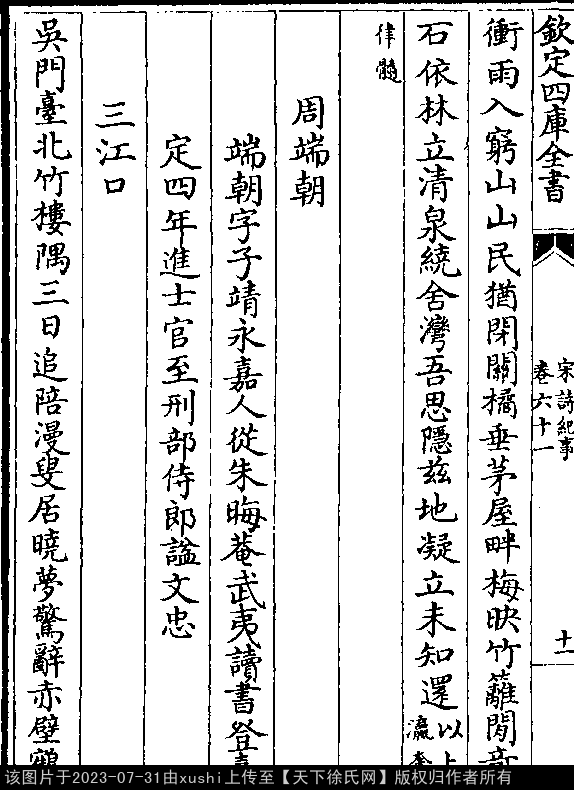 欽定四庫全書
宋詩紀事
卷六十一
十一
衝雨入窮山山民猶閉關橘垂茅屋畔梅映竹籬閒
石依林立清泉繞舍灣吾思隱兹地凝立未知還以上
瀛奎
律髓
周端朝
端朝字子靖永嘉人從朱晦菴武夷讀書登嘉
定四年進士官至刑部侍郎諡文忠
三江口
吳門臺北竹樓隅三日追陪漫叟居曉夢驚辭赤壁鶴
该图片于2023-07-31由xushi上传至【天下徐氏网】版权归作者所有